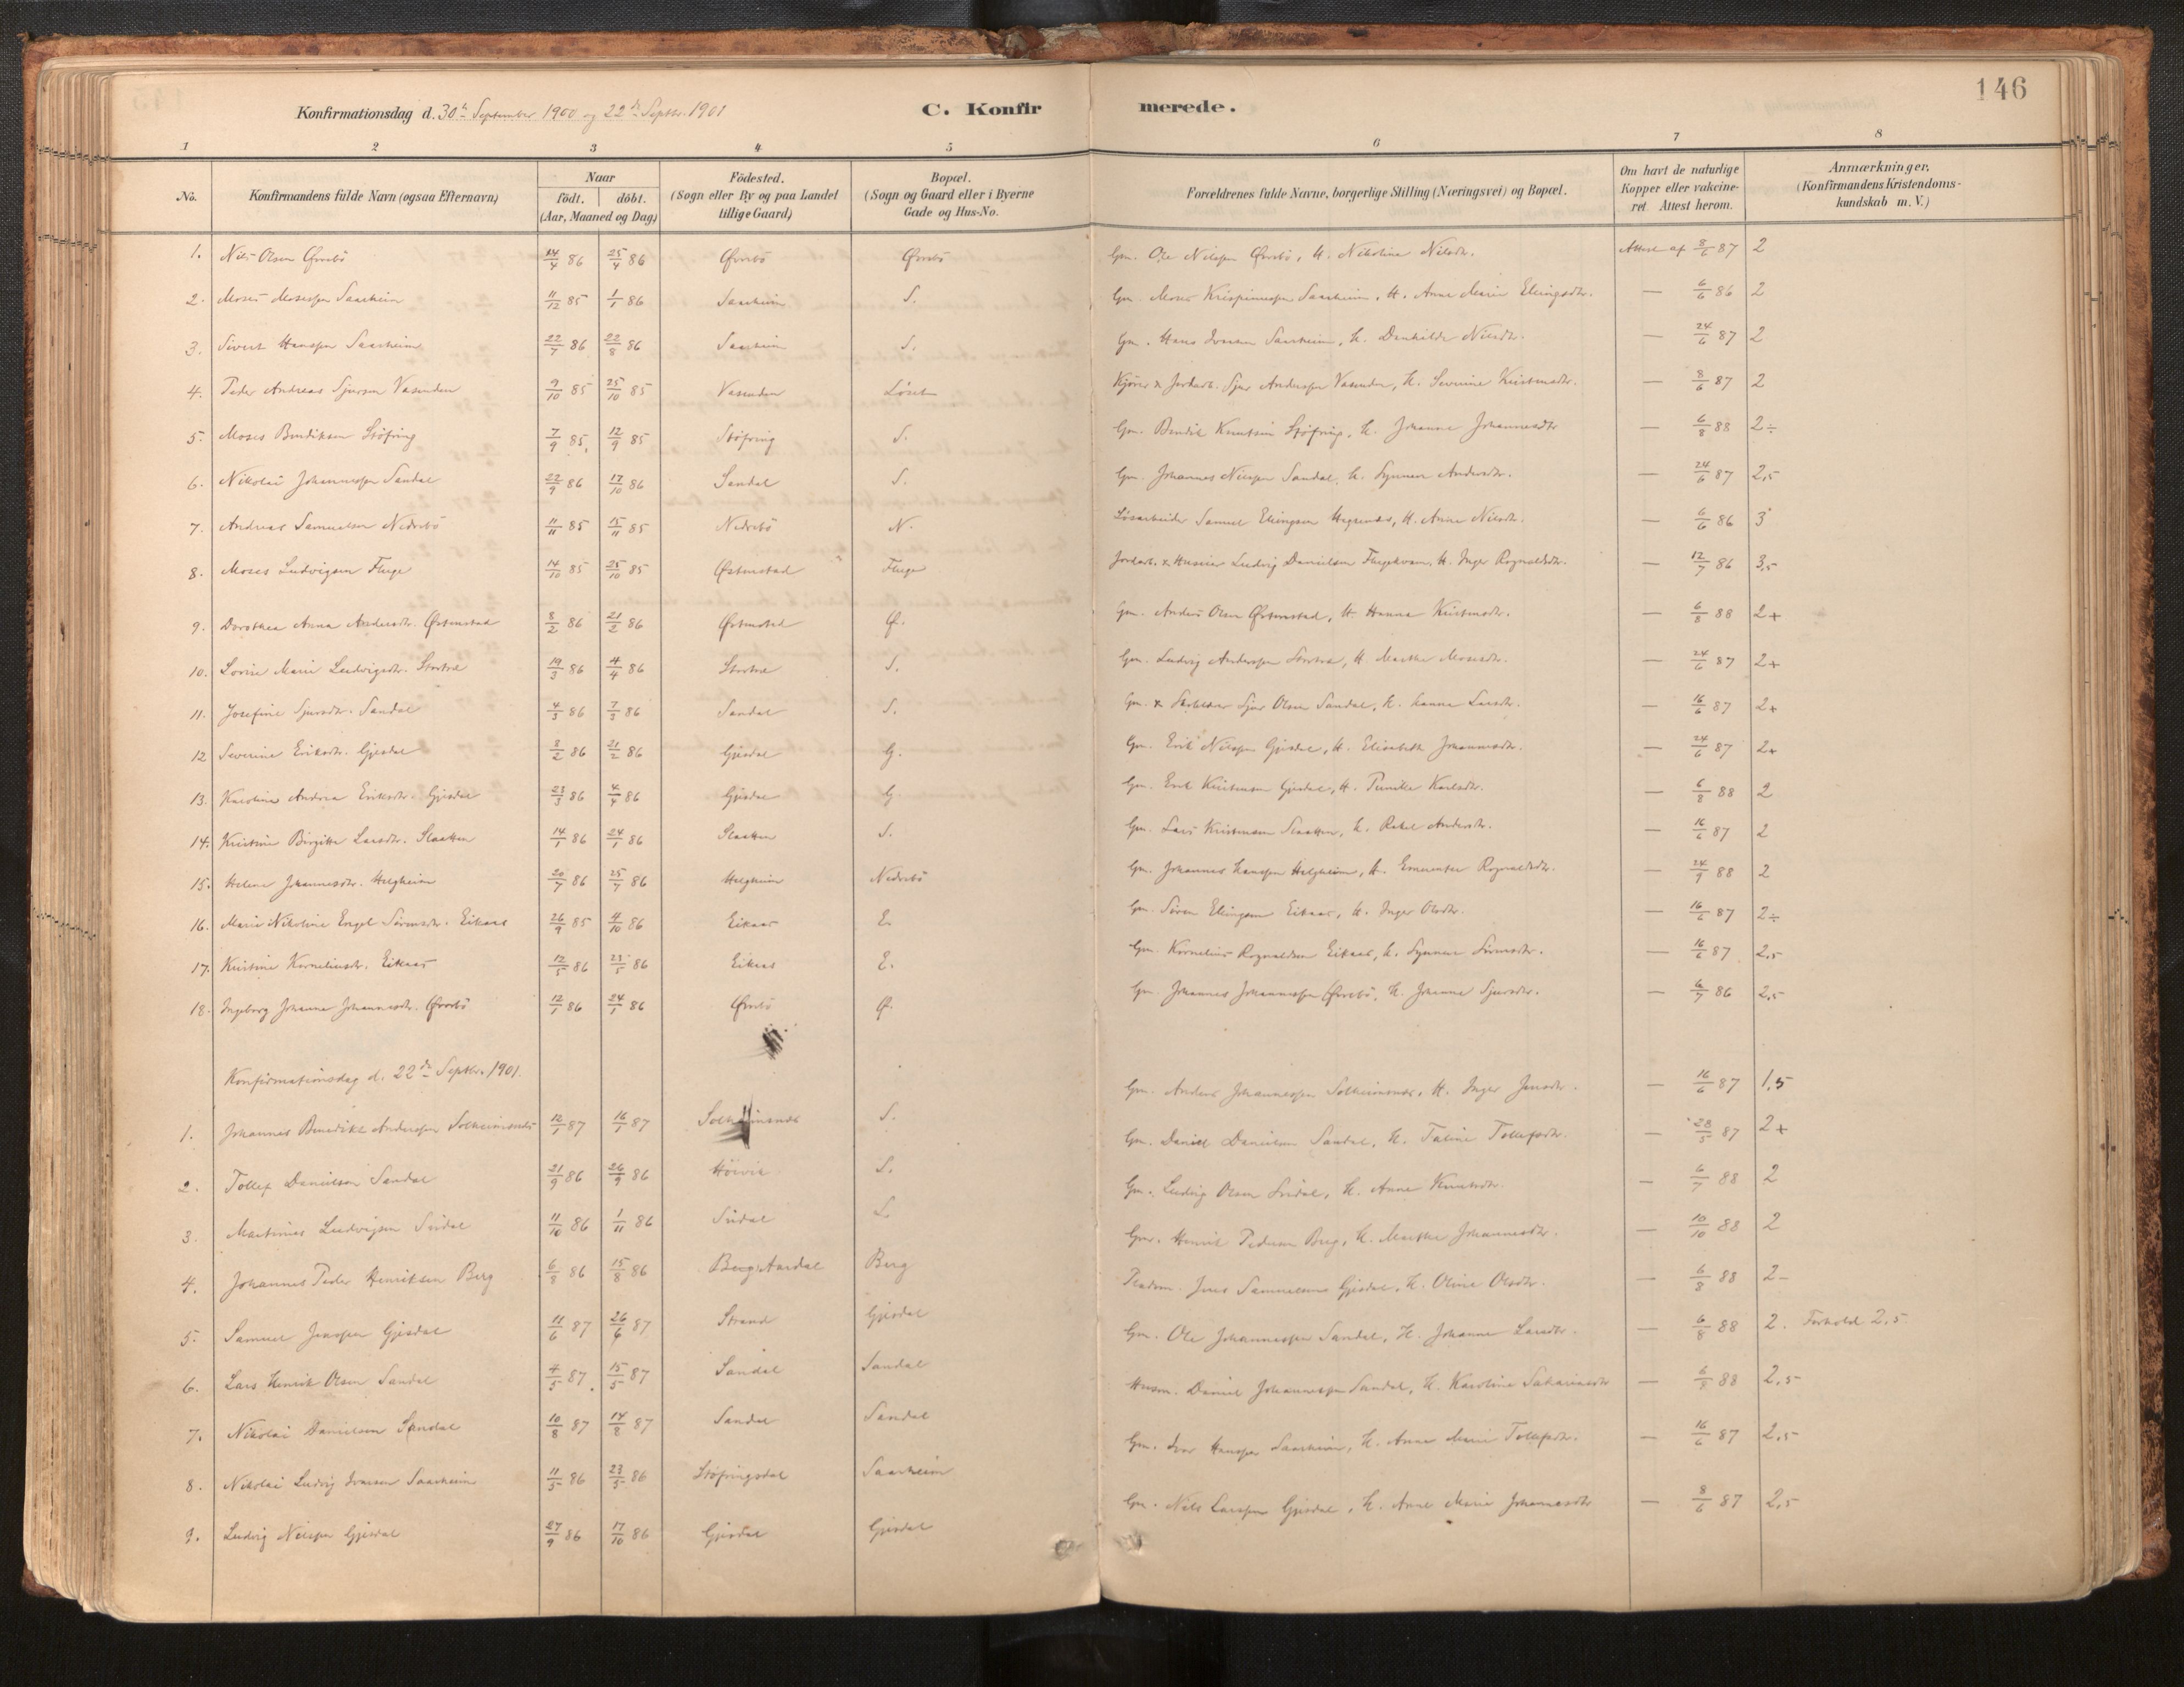 146
Konfirmationsdag d. 30te September 1900 og 22de Septbr. 1901
C. Konfirmerede.
1 2 3 4 5 6 7 8
No. Konfirmandens fulde Navn (ogsaa Efternavn) Naar födt. döbt. (Aar, Maaned og Dag) Födested. (Sogn eller By og paa Landet tillige Gaard) Bopæl. (Sogn og Gaard eller i Byerne Gade og Hus-No. Forældrenes fulde Navne, borgerlige Stilling (Næringsvei) og Bopæl. Om havt de naturlige Kopper eller vakcineret. Attest herom. Anmærkninger. (Konfirmandens Kristendomskundskab m. V.)
1. Nils Olsen Øvrebö 24/4 86 25/4 86 Øvrebö Øvrebö Gm. Ole Nilssen Øvrebö, H. Nikoline Nilsdtr. Attest af 8/6 87 2
2. Moses Mosessen Saarheim 11/12 85 1/1 86 Saarheim S. Gm. Moses Krispinussen Saarheim, H. Anne Marie Elingsdtr. — 6/6 86 2
3. Sivert Hanssen Saarheim 22/7 86 22/8 86 Saarheim S. Gm. Hans Ivarsen Saarheim, H. Dankilde Nilsdtr. — 24/6 87 2
4. Peder Andreas Sjursen Vasenden 9/10 85 25/10 85 Vasenden Löset Kjører & Jordarb. Sjur Anderssen Vasenden, H. Severine Kristensdtr. — 8/6 87 2
5. Moses Bendiksen Støfring 7/9 85 12/9 85 Støfring S. Gm. Bendik Knutsen Støfring, H. Johanne Johannesdtr — 6/8 88 2÷
6. Nikolai Johannessen Sandal 22/9 86 17/10 86 Sandal S. Gm. Johannes Nilssen Sandal, H. Synneve Andersdtr. — 24/6 87 2,5
7. Andreas Samuelsen Nedrebö 11/11 85 15/11 85 Nedrebö N. Løsarbeider Samuel Elingsen Hegrenæs, H. Anne Nilsdtr. — 6/6 86 3
8. Moses Ludvigsen Fluge 14/10 85 25/10 85 Østenstad Fluge Jordarb. & Husmand Ludvig Danielsen Flugekvam, H. Inger Rognaldsdtr. — 12/7 86 3,5
9. Dorothea Anna Andersdtr. Østenstad 8/2 86 21/2 86 Østenstad Ø. Gm. Anders Olsen Østenstad, H. Hanna Kristensdtr. — 6/8 88 2+
10. Lovise Marie Ludvigsdtr. Stortræ 19/3 86 4/4 86 Stortræ S. Gm. Ludvig Anderssen Stortræ, H. Marthe Mosesdtr. — 24/6 87 2+
11. Josefine Sjursdtr. Sandal 4/3 86 7/3 86 Sandal S. Gm. & Sjur Olsen Sandal, H. Hanna Larsdtr. — 16/6 87 2+
12 Severine Eriksdtr. Gjesdal 8/2 86 21/2 86 Gjesdal G. Gm. Erik Nilssen Gjesdal, H. Elisabeth Johannesdtr. — 24/6 87 2+
13. Karoline Andrea Eriksdtr. Gjesdal 23/3 86 4/4 86 Gjesdal G. Gm. Erik Kristensen Gjesdal, H. Pernille Karlsdtr. — 6/8 88 2
14. Kristine Birgitte Larsdtr. Slaatten 14/1 86 24/1 86 Slaatten S. Gm. Lars Kristensen Slaatten, H. Rakel Andersdtr. — 16/6 87 2
15. Helene Johannesdtr. Helgheim 20/7 86 25/7 86 Helgheim Nedrebö Gm. Johannes Hanssen Helgheim, H. Emerentse Rognaldsdtr. — 24/9 88 2
16. Marie Nikoline Engel Sörensdtr. Eikaas 26/9 85 4/10 86 Eikaas E. Gm. Sören Elingsen Eikaas, H. Inger Olsdtr. — 16/6 87 2÷
17. Kristine Korneliusdtr. Eikaas 12/5 86 23/5 86 Eikaas E. Gm. Kornelius Rognaldsen Eikaas, H. Synneve Sörensdtr. — 16/6 87 2,5
18. Ingeborg Johanne Johannesdtr. Øvrebö 12/1 86 24/1 86 Øvrebö Ø. Gm. Johannes Johannessen Øvrebö, H. Johanne Sjursdtr. — 6/7 86 2,5
Konfirmationsdag d. 22de Septbr. 1901.
1. Johannes Benedikt Anderssen Solheimsnæs 12/1 87 16/1 87 Solheimsnæs S. Gm. Anders Johannessen Solheimsnæs, H. Inger Jensdtr. — 16/6 87 1,5
2. Tollef Danielsen Sandal 21/9 86 26/9 86 Höivik S. Gm. Daniel Danielsen Sandal, H. Taline Tollefsdtr. — 23/5 87 2+
3. Martinus Ludvigsen Svidal 11/10 86 1/11 86 Svidal S. Gm. Ludvig Olsen Svidal, H. Anne Knutsdtr. — 6/7 88 2
4. Johannes Peder Henriksen Berg 6/8 86 15/8 86 Berg, Aardal Berg Gm. Henrik Pedersen Berg, H. Marthe Johannesdtr. — 10/10 88 2
5. Samuel Jenssen Gjesdal 11/6 87 26/6 87 Strand Gjesdal Jens Samuelsen Gjesdal, H. Oline Olsdtr. — 6/8 88 2-
6. Lars Henrik Olsen Sandal 4/5 87 15/5 87 Sandal Sandal Gm. Ole Johannessen Sandal, H. Johanne Larsdtr. — 6/8 88 2. Forhold 2,5
7. Nikolai Danielsen Sandal 10/8 87 14/8 87 Sandal Sandal Husm. Daniel Johannessen Sandal, H. Karoline Sakariasdtr — 6/8 88 2,5
8. Nikolai Ludvig Ivarsen Saarheim 11/5 86 23/5 86 Støfringsdal Saarheim Gm. Ivar Hanssen Saarheim, H. Anne Marie Tollefsdtr. — 16/6 87 2,5
9. Ludvig Nilssen Gjesdal 27/9 86 17/10 86 Gjesdal Gjesdal Gm. Nils Larssen Gjesdal, H. Anne Marie Johannesdtr — 8/6 87 2,5